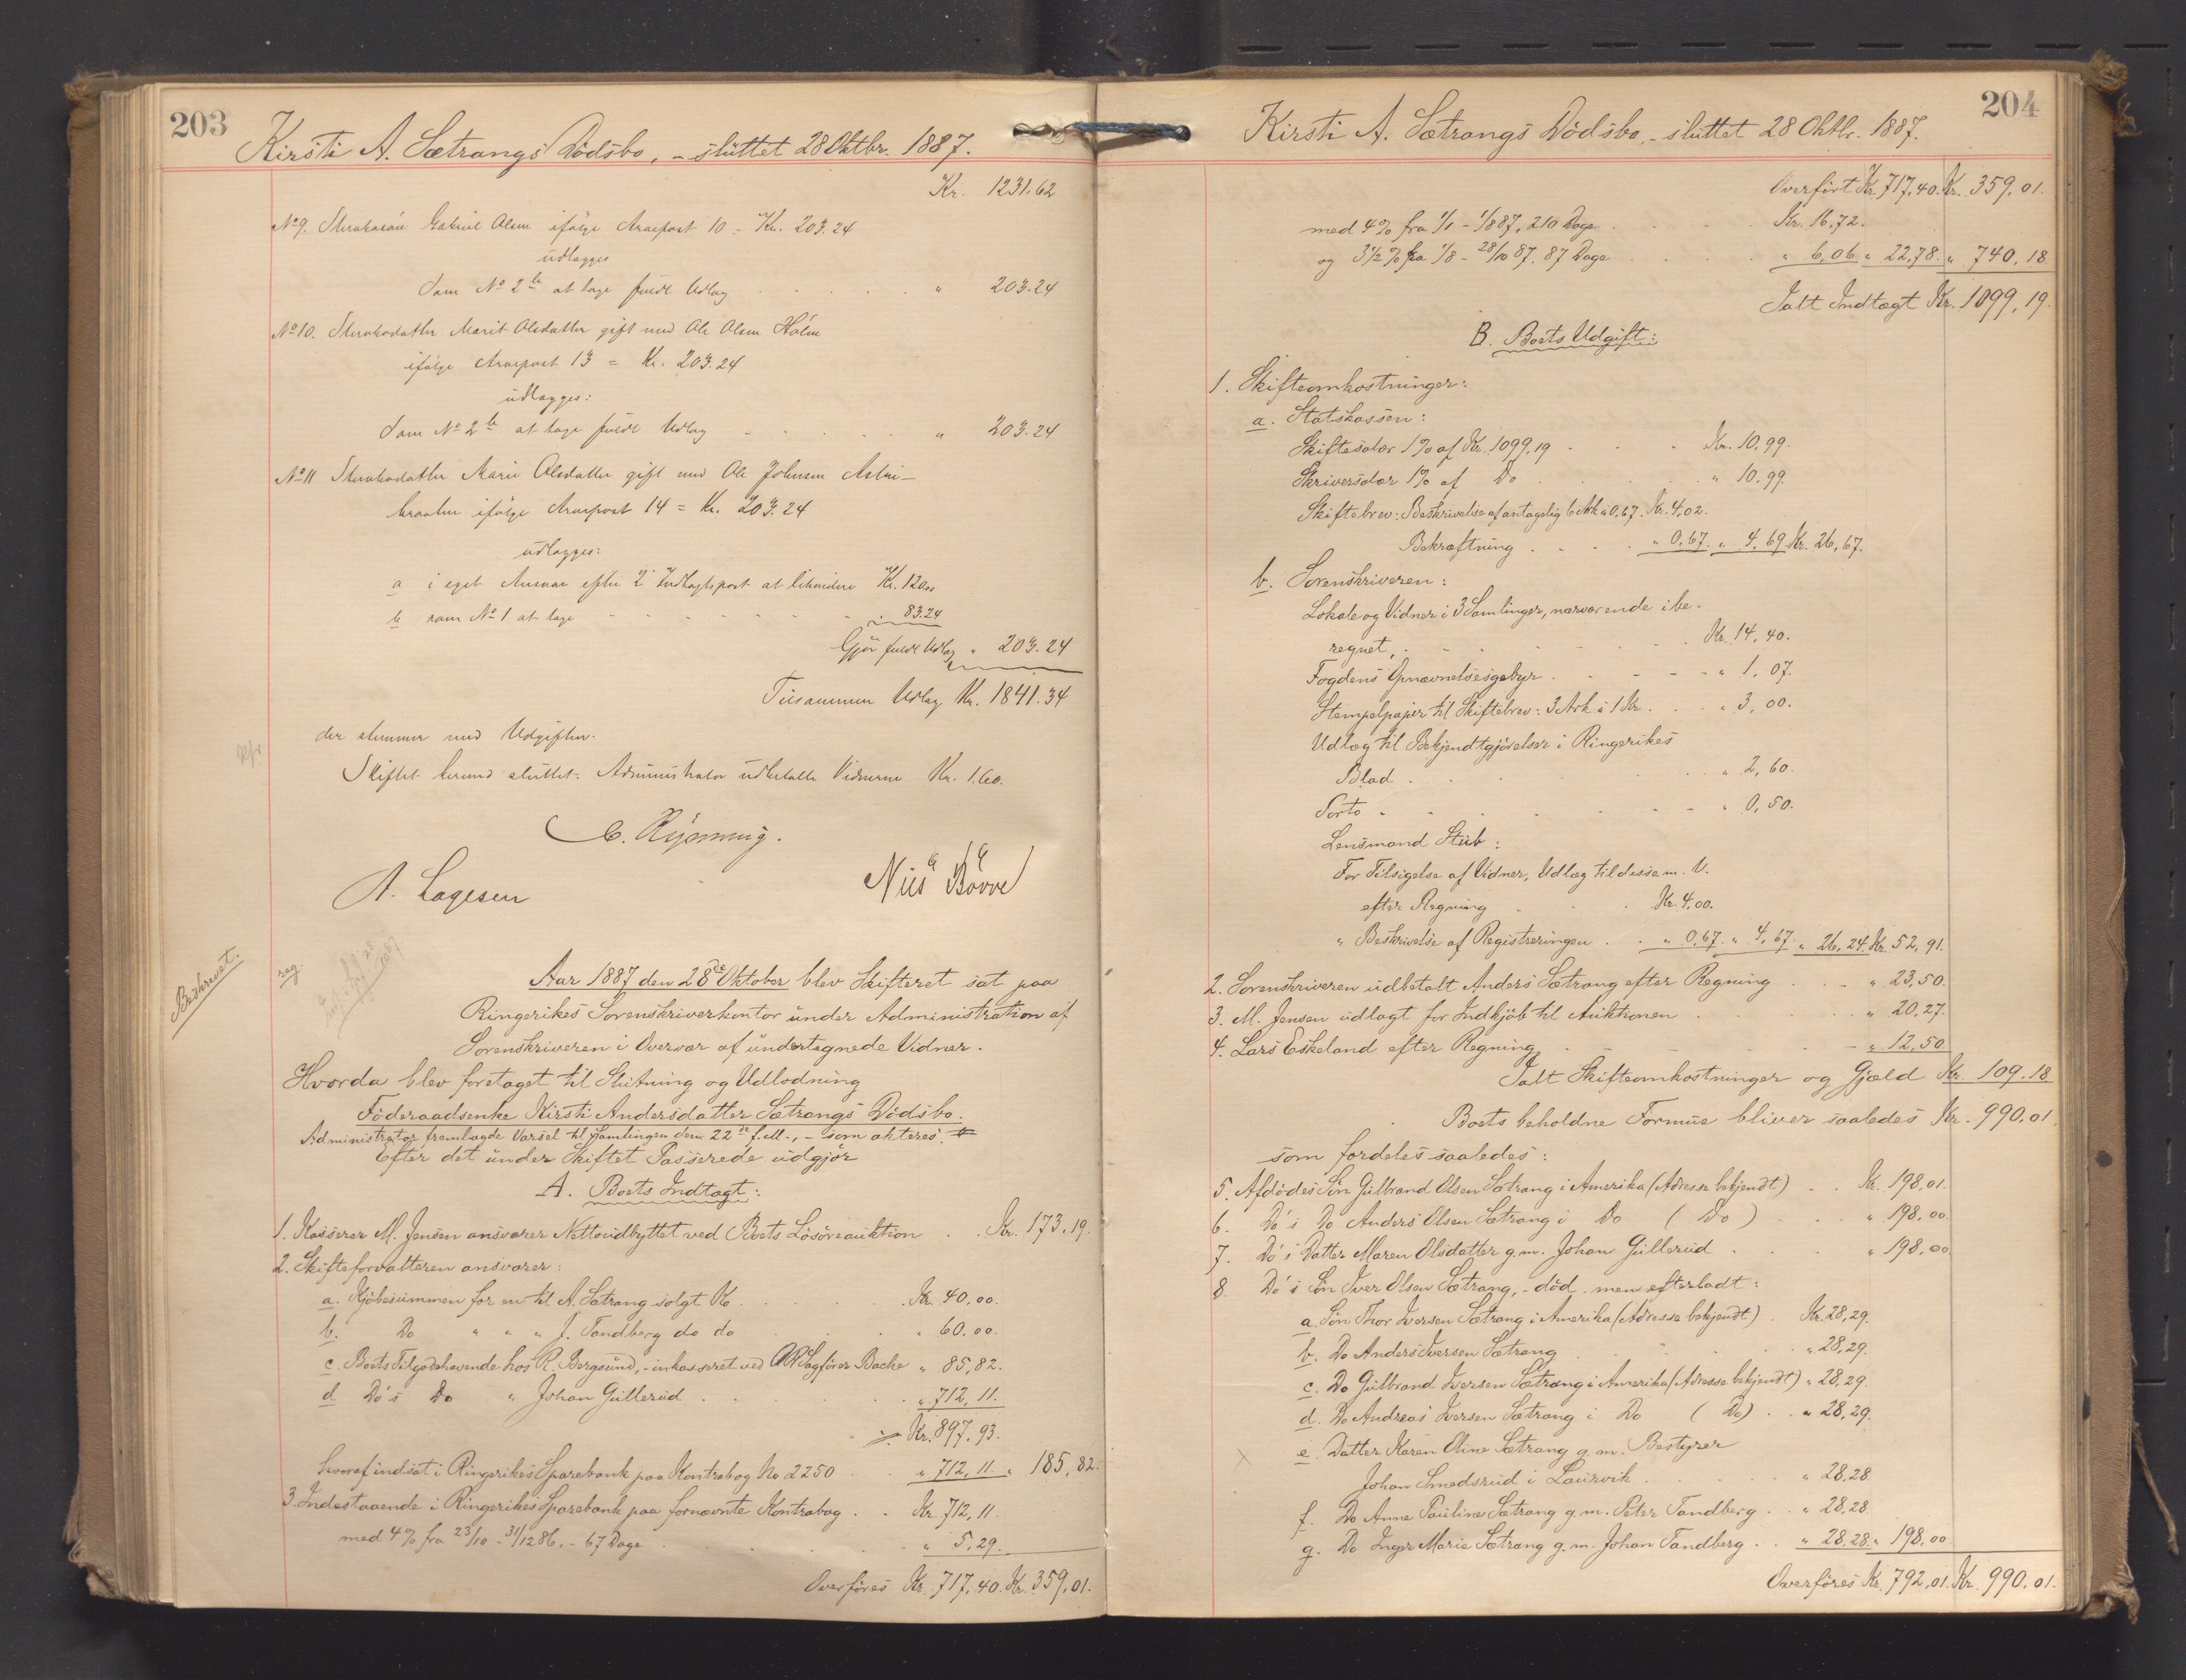 203
Kirsti A. Sætrangs Dödsbo, - sluttet 28 Oktbr. 1887.
Kr. 1231.62
No 9. Gabriel Olsen ifølge Arvepost 10 = Kr. 203.24
udlægges
Som No 2 at tage fuldt Udlæg " 203.24
No 10. Marit Olsdatter gift med Ole Olsen Holm
ifølge Arvepost 13 = Kr. 203.24
udlægges:
Som No 2 at tage fuldt Udlæg " 203.24
No 11 Marie Olsdatter gift med Ole Johnsen
braaten ifølge Arvepost 14 = Kr. 203.24
udlægges:
a i eget Ansvar efter 2 Indtægtspost at likvidere Kr. 120.00
b som No 1 at tage " 83.24
Gjør fuldt Udlæg " 203.24
Tilsammen Udlæg Kr. 1841.34
der stemmer med Udgiften.
Skiftet hermed sluttet. Administrator udbetalte Vidnerne Kr. 1.60.
C. Rynning.
A. Lagesen
Nils Bövre
Beskrevet.
reg.
Aar 1887 den 28de Oktober blev Skifteret sat paa
Ringerikes Sorenskriverkontor under Administration af
Sorenskriveren i Overvær af undertegnede Vidner.
Hvorda blev foretaget til Slutning og Udlodning
Föderaadsenke Kirsti Andersdatter Sætrangs Dödsbo.
Administrator fremlagde Varsel til Samlingen dem. 22de f. M., - som akteres.
Efter det under Skiftet Passerede udgjör
A. Boets Indtægt:
1. Kasserer M. Jensen ansvarer Nettoudbyttet ved Boets Lösöreauktion . . Kr. 173.19.
2. Skifteforvalteren ansvarer:
a. Kjöbesummen for en til A. Sætrang solgt Ko . . Kr. 40.00.
b. Do " " " J. Tandberg do do " 60.00.
c. Boets Tilgodehavende hos R. Bergsund, - inkasseret ved ORSagfører Bache " 85,82.
d Do's Do " Johan Gullerud . . " 712,11.
Kr. 897.93.
hvoraf indsat i Ringerikes Sparebank paa Kontrabog No 2250 . " 712,11. " 185,82.
3. Indestaaende i Ringerikes Sparebank paa fornævnte Kontrabog . . Kr. 712,11.
med 4% fra 23/10 - 31/12 86, - 67 Dage . . " 5,29.
Overføres Kr. 717,40. Kr. 359,01.
204
Kirsti A. Sætrangs Dödsbo, - sluttet 28 Oktbr. 1887.
Overfört Kr. 717,40. Kr. 359,01.
med 4% fra 1/1 - 1/8 87, 210 Dage . . Kr. 16,72.
og 3 1/2 % fra 1/8 - 28/10 87. 87 Dage . . " 6,06. " 22,78. " 740,18.
Ialt Indtægt Kr. 1099,19.
B. Boets Udgift:
1. Skifteomkostninger:
a. Statskassen:
Skiftesdør 1% af Kr. 1099,19 . . Kr. 10,99.
Skriversdør 1% af Do . . " 10.99.
Skiftebrev: Beskrivelse af antagelig 6 Ark à 0,67. Kr. 4,02.
Bekræftning . . " 0,67. " 4,69. Kr. 26,67.
b. Sorenskriveren:
Lokale og Vidner i 3 Samlinger, nærværende ibe-
regnet, . . Kr. 14,40.
Fogdens Opnævnelsesgebyr . . " 1,07.
Stempelpapir til Skiftebrev: 3 Ark à 1 Kr. . . " 3,00.
Udlæg til Bekjendtgjörelser i Ringerikes
Blad . . " 2,60.
Porto . . " 0,50.
Lensmand Stub:
For Tilsigelse af Vidner, Udlæg til disse m. V.
efter Regning . . Kr. 4,00.
" Beskrivelse af Registreringen . . " 0,67. " 4,67. " 26,24. Kr. 52,91.
2. Sorenskriveren udbetalt Anders Sætrang efter Regning . . " 23,50.
3. M. Jensen udlagt for Indkjöb til Auktionen . . " 20,27.
4. Lars Eskeland efter Regning . . " 12,50.
Ialt Skifteomkostninger og Gjæld Kr. 109.18
Boets beholdne Formue bliver saaledes Kr. 990,01.
som fordeles saaledes:
5. Afdödes Sön Gulbrand Olsen Sætrang i Amerika (Adresse bekjendt) . . Kr. 198,01.
6. Do's Do Anders Olsen Sætrang i Do (Do) . . " 198,00.
7. Do's Datter Maren Olsdatter g. m. Johan Gullerud . . " 198,00
8. Do's Sön Iver Olsen Sætrang, - död men efterladt:
a. Sön Thor Iversen Sætrang i Amerika (Adresse bekjendt) . Kr. 28,29.
b. Do Anders Iversen Sætrang . . " 28,29.
c. Do Gulbrand Iversen Sætrang i Amerika (Adresse bekjendt) " 28,29.
d. Do Andreas Iversen Sætrang i Do (Do) . . " 28,29.
e. Datter Karen Oline Sætrang g. m. Bestyrer
Johan Smedsrud i Laurvik . . " 28,28
f. Do Anne Pauline Sætrang g. m. Peter Tandberg . . " 28,28
g. Do Inger Marie Sætrang g. m. Johan Tandberg . . " 28.28. " 198,00
Overföres Kr. 792,01. Kr. 990.01.